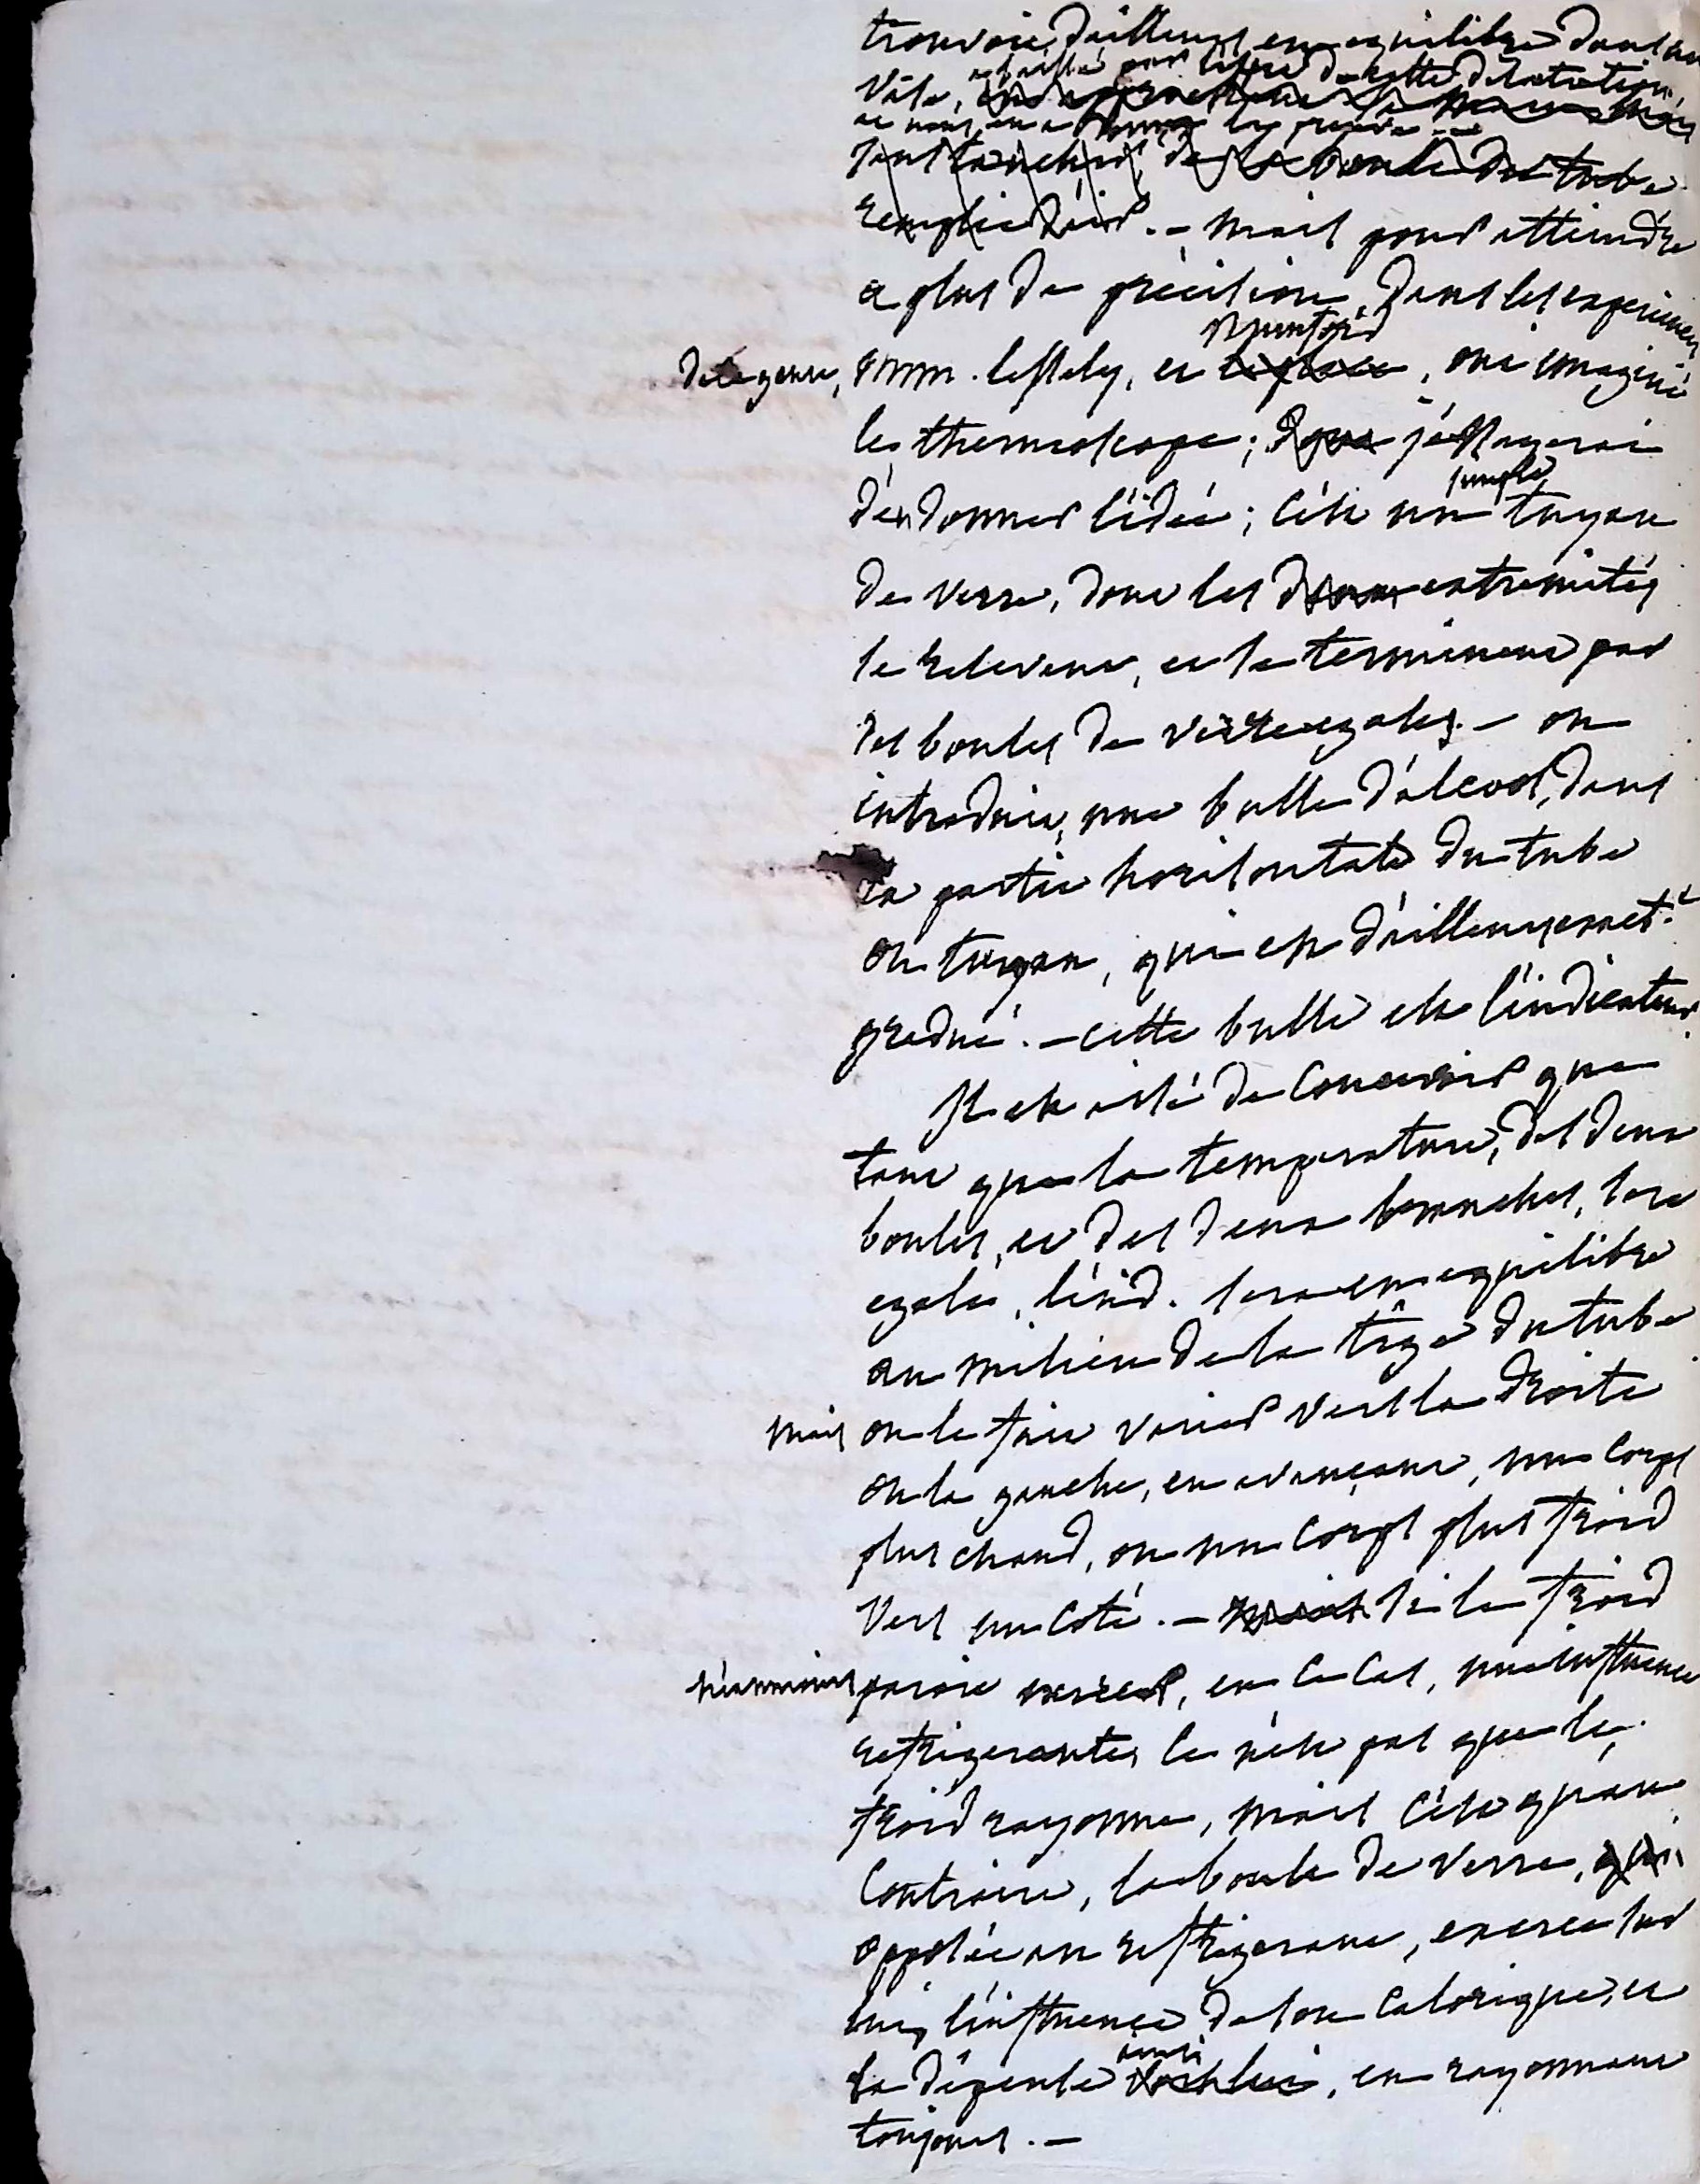 trouvoit d'ailleurs en equilibre dans un
vase, rebaissé par l'effet de cette dilatation
ne nous en a donné la preuve. —
remplie d'air. — mais pour atteindre
a plus de précision, dans les experiences
de ce genre, mm. leslely, et Rumford, ont imaginé
le thermoscope; j'essayerai
d'en donner l'idée; c'est un simple tuyau
de verre, dont les extremités
se relevent, et se terminent par
des boules de verre egales. — on
introduit, une bulle d'alcool, dans
la partie horisontale du tube
ou tuyau, qui est d'ailleurs exact.t
gradué. — cette bulle est l'indicateur.
Il est aisé de concevoir que
tant que la temperature, des deux
boules, et des deux branches, sera
egale, l'ind. sera en equilibre
au milieu de la tige du tube
mais on le fait varier vers la droite
ou la gauche, en avançant, un corps
plus chaud, ou un corps plus froid
vers un coté. — si le froid
néanmoins paroit exercer, en ce cas, une influence
refrigerante, ce n'est pas que le
froid rayonne, mais c'est qu'au
contraire, la boule de verre,
opposée au refrigerant, exerce sur
lui, l'influence de son calorique, et
la dépense ainsi, en rayonnant
toujours. —